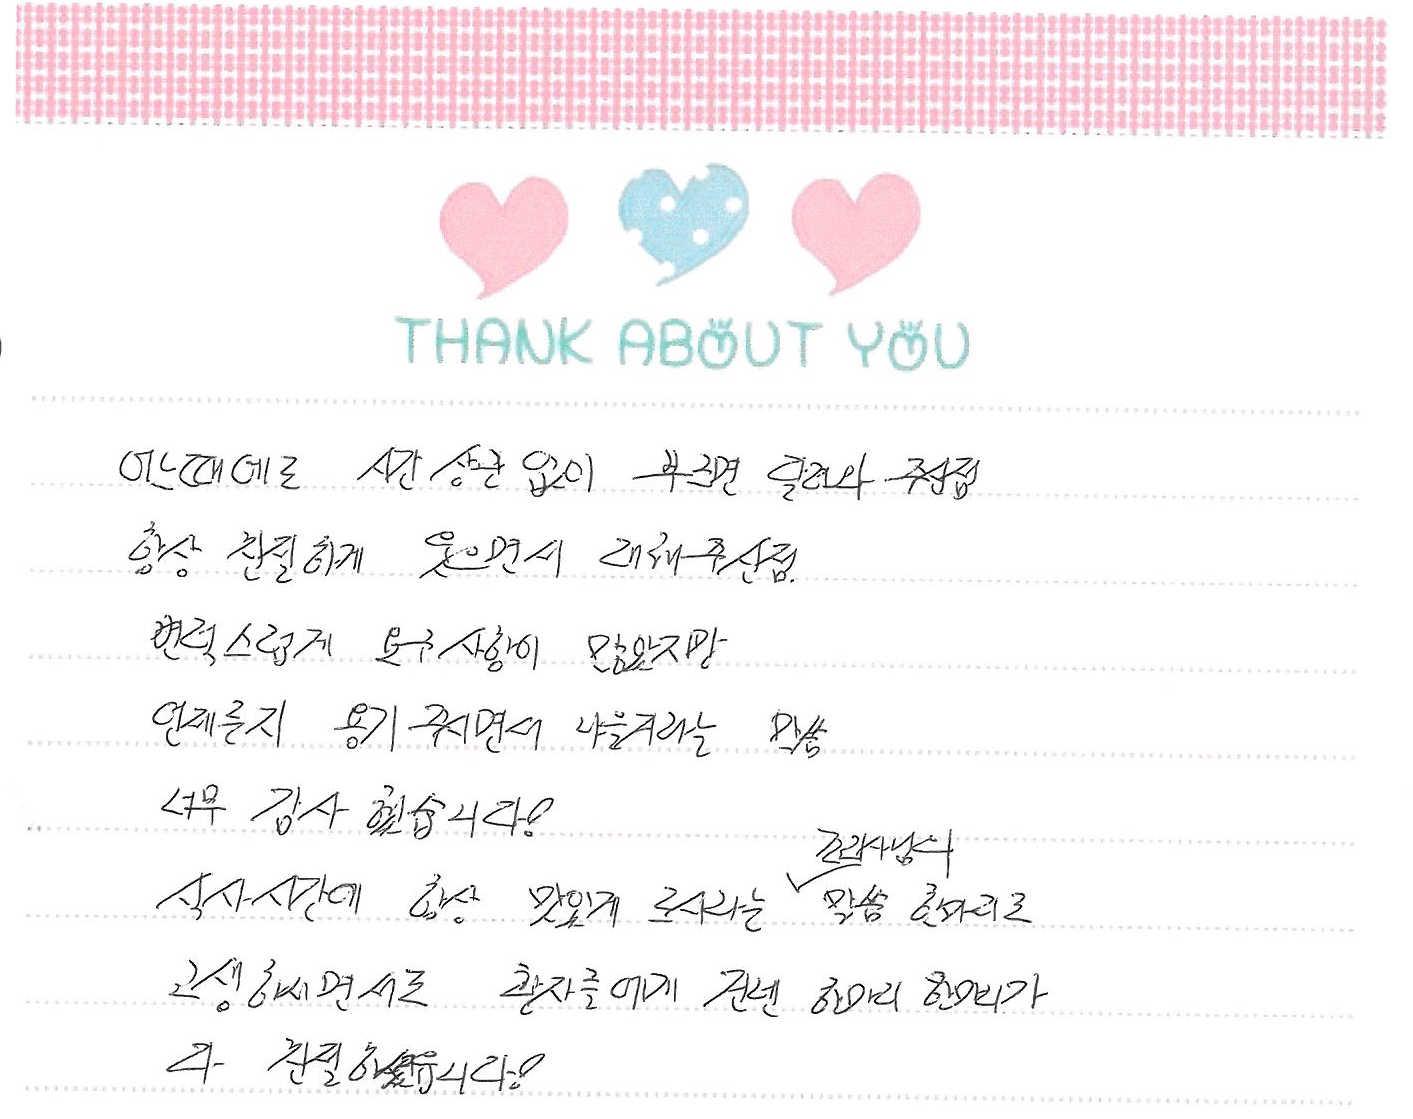 THANK ABOUT YOU
어느때에도 시간 상관 없이 부르면 달려와 주신점
항상 친절하게 웃으면서 대해주신점.
변덕스럽게 요구사항이 많았지만
언제든지 용기 주시면서 나을거라는 말씀
너무 감사 했습니다!
식사시간에 항상 맛있게 드시라는 조리사님의 말씀 한마디로
고생하시면서도 환자들에게 건넨 한마디 한마디가
다 친절하셨습니다!